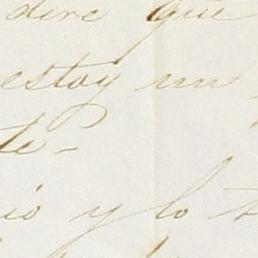 dire que
estoy un
te-
io y lo